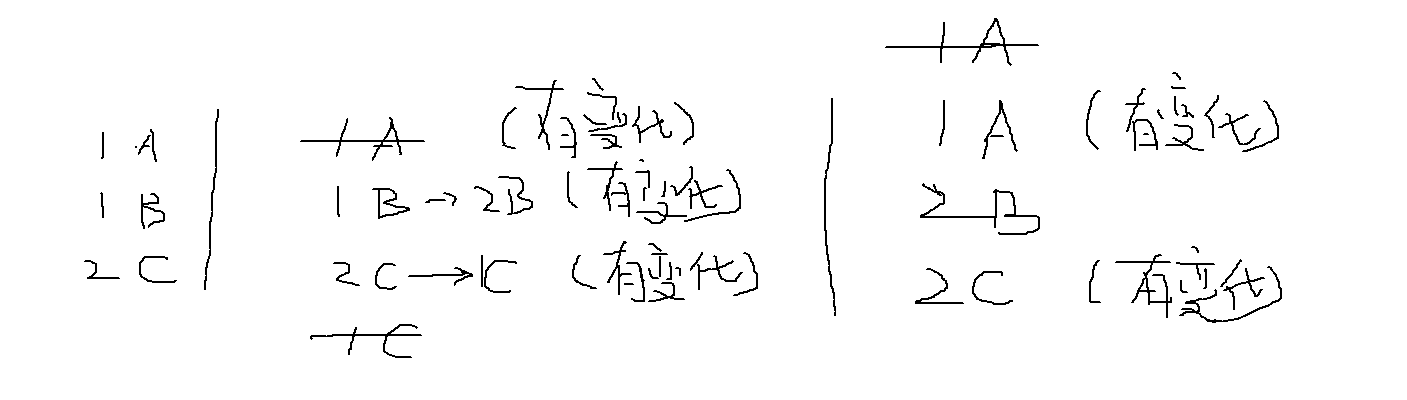 1 A
1 B
2 C
1 A (有变化)
1 B → 2B (有变化)
2 C → 1C (有变化)
1 C
1 A
1 A (有变化)
2 B
2 C (有变化)